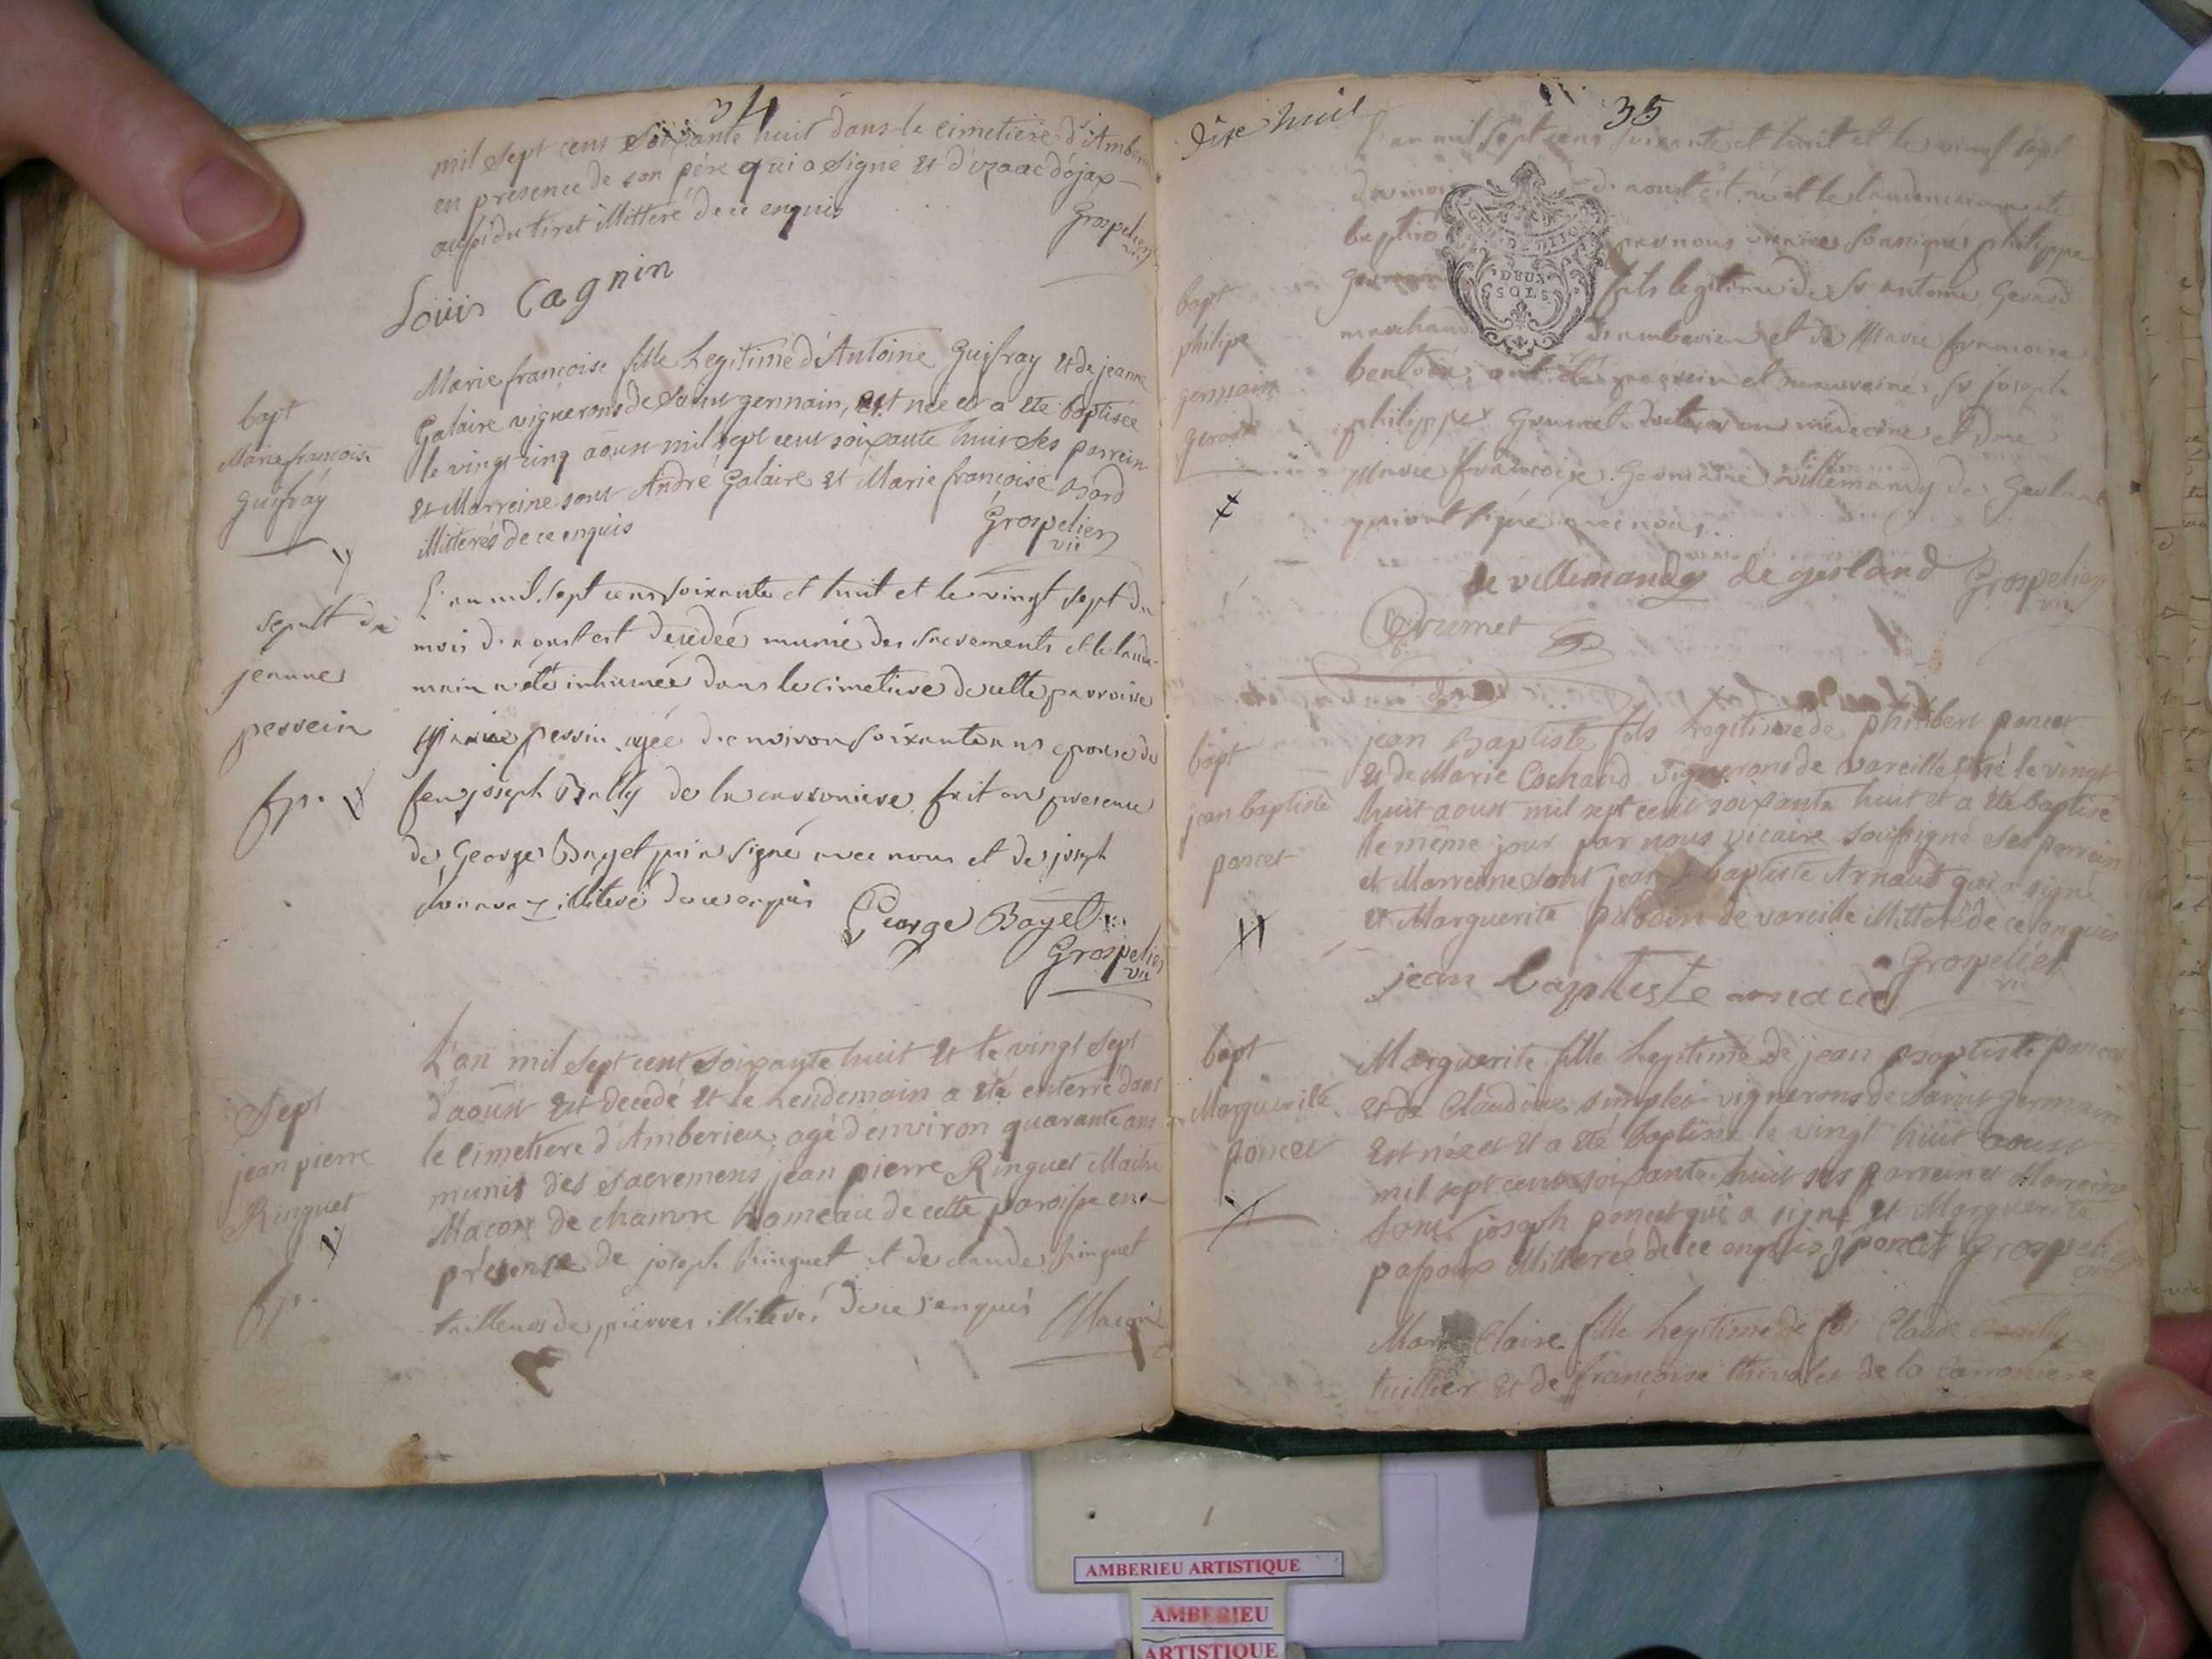 34
mil sept cent soixante huit dans le cimetiere d'Amberieu
en présence de son père qui a signé et d'izaac dójax
aussi du tiret illitteré de ce enquis
Grospelier
vic
Louis Cagnin
bapt
Marie françoise
guifray
Marie françoise fille Legitime d'Antoine Guifray et de jeanne
Galaire vignerons de saint germain, est née et a été baptisée
le vingt cinq aoust mil sept cent soixante huit ses parrein
et Marreine sont André Galaire et Marie françoise
illiterés de ce enquis
Grospelier
vic
sepult de
jeanne
perrein
fp.
L'an mil sept cens soixante et huit et le vingt sept du
mois d'aoust est decedée munie des sacrements et le lende-
main a été inhumée dans le cimetiere de cette parroisse
perrin agée d'environ soixante ans epouse de
feu joseph Bully de la carroniere fait en presence
de George Bayet qui a signé avec nous et de joseph
illiteré de ce enquis
George Bayet
Grospelier
vic
Sept
jean pierre
Ringuet
fp.
L'an mil sept cent soixante huit et le vingt sept
d'aoust est decedé et le Lendemain a été enterré dans
le cimetiere d'Amberieu, agé d'environ quarante ans
munis des sacremens jean pierre Ringuet Maitre
Macon de chamvre hameau de cette paroisse en
présence de joseph Ringuet et de claude Ringuet
tailleurs de pierres illiterés de ce enquis
dix huit
35
L'an mil sept cens soixante et huit et le vingt sept
du mois d'aoust est né et le lendemain a été
baptisé par nous vicaire soussigné philippe
germain fils legitime de Sr antoine Gerard
marchand d'amberieu et de Marie francoise
ont été parrein et marreine Sr joseph
philippe Grumet docteur en médecine et dme
Marie francoise Germaine villemandy de Gesland
qui ont signé avec nous
bapt
philipe
germain
gerard
DEUX
SOLS
de villemandy de gesland
Grospelier
vic
Grumet
bapt
jean baptiste
poncet
jean Baptiste fils Legitime de philibert poncet
et de Marie Cochand vignerons de vareille est né le vingt
huit aoust mil sept cent soixante huit et a été baptisé
le même jour par nous vicaire soussigné ses parrein
et Marreine sont jean baptiste Arnaud qui a signé
et Marguerite pilodin de vareille illitterée de ce enquis
Grospelier
vic
jean baptiste arnaud
bapt
Marguerite
poncet
Marguerite fille Legitime de jean Baptiste poncet
et de Claudine simplex vignerons de saint germain
est née et a été baptisée le vingt huit aoust
mil sept cent soixante huit ses parrein et Marreine
sont joseph poncet qui a signé et Marguerite
passoux illitterée de ce enquis J poncet Grospelier
Marie Claire fille Legitime de Claude
tuillier et de françoise thivolet de la Carroniere
AMBERIEU ARTISTIQUE
AMBERIEU
ARTISTIQUE